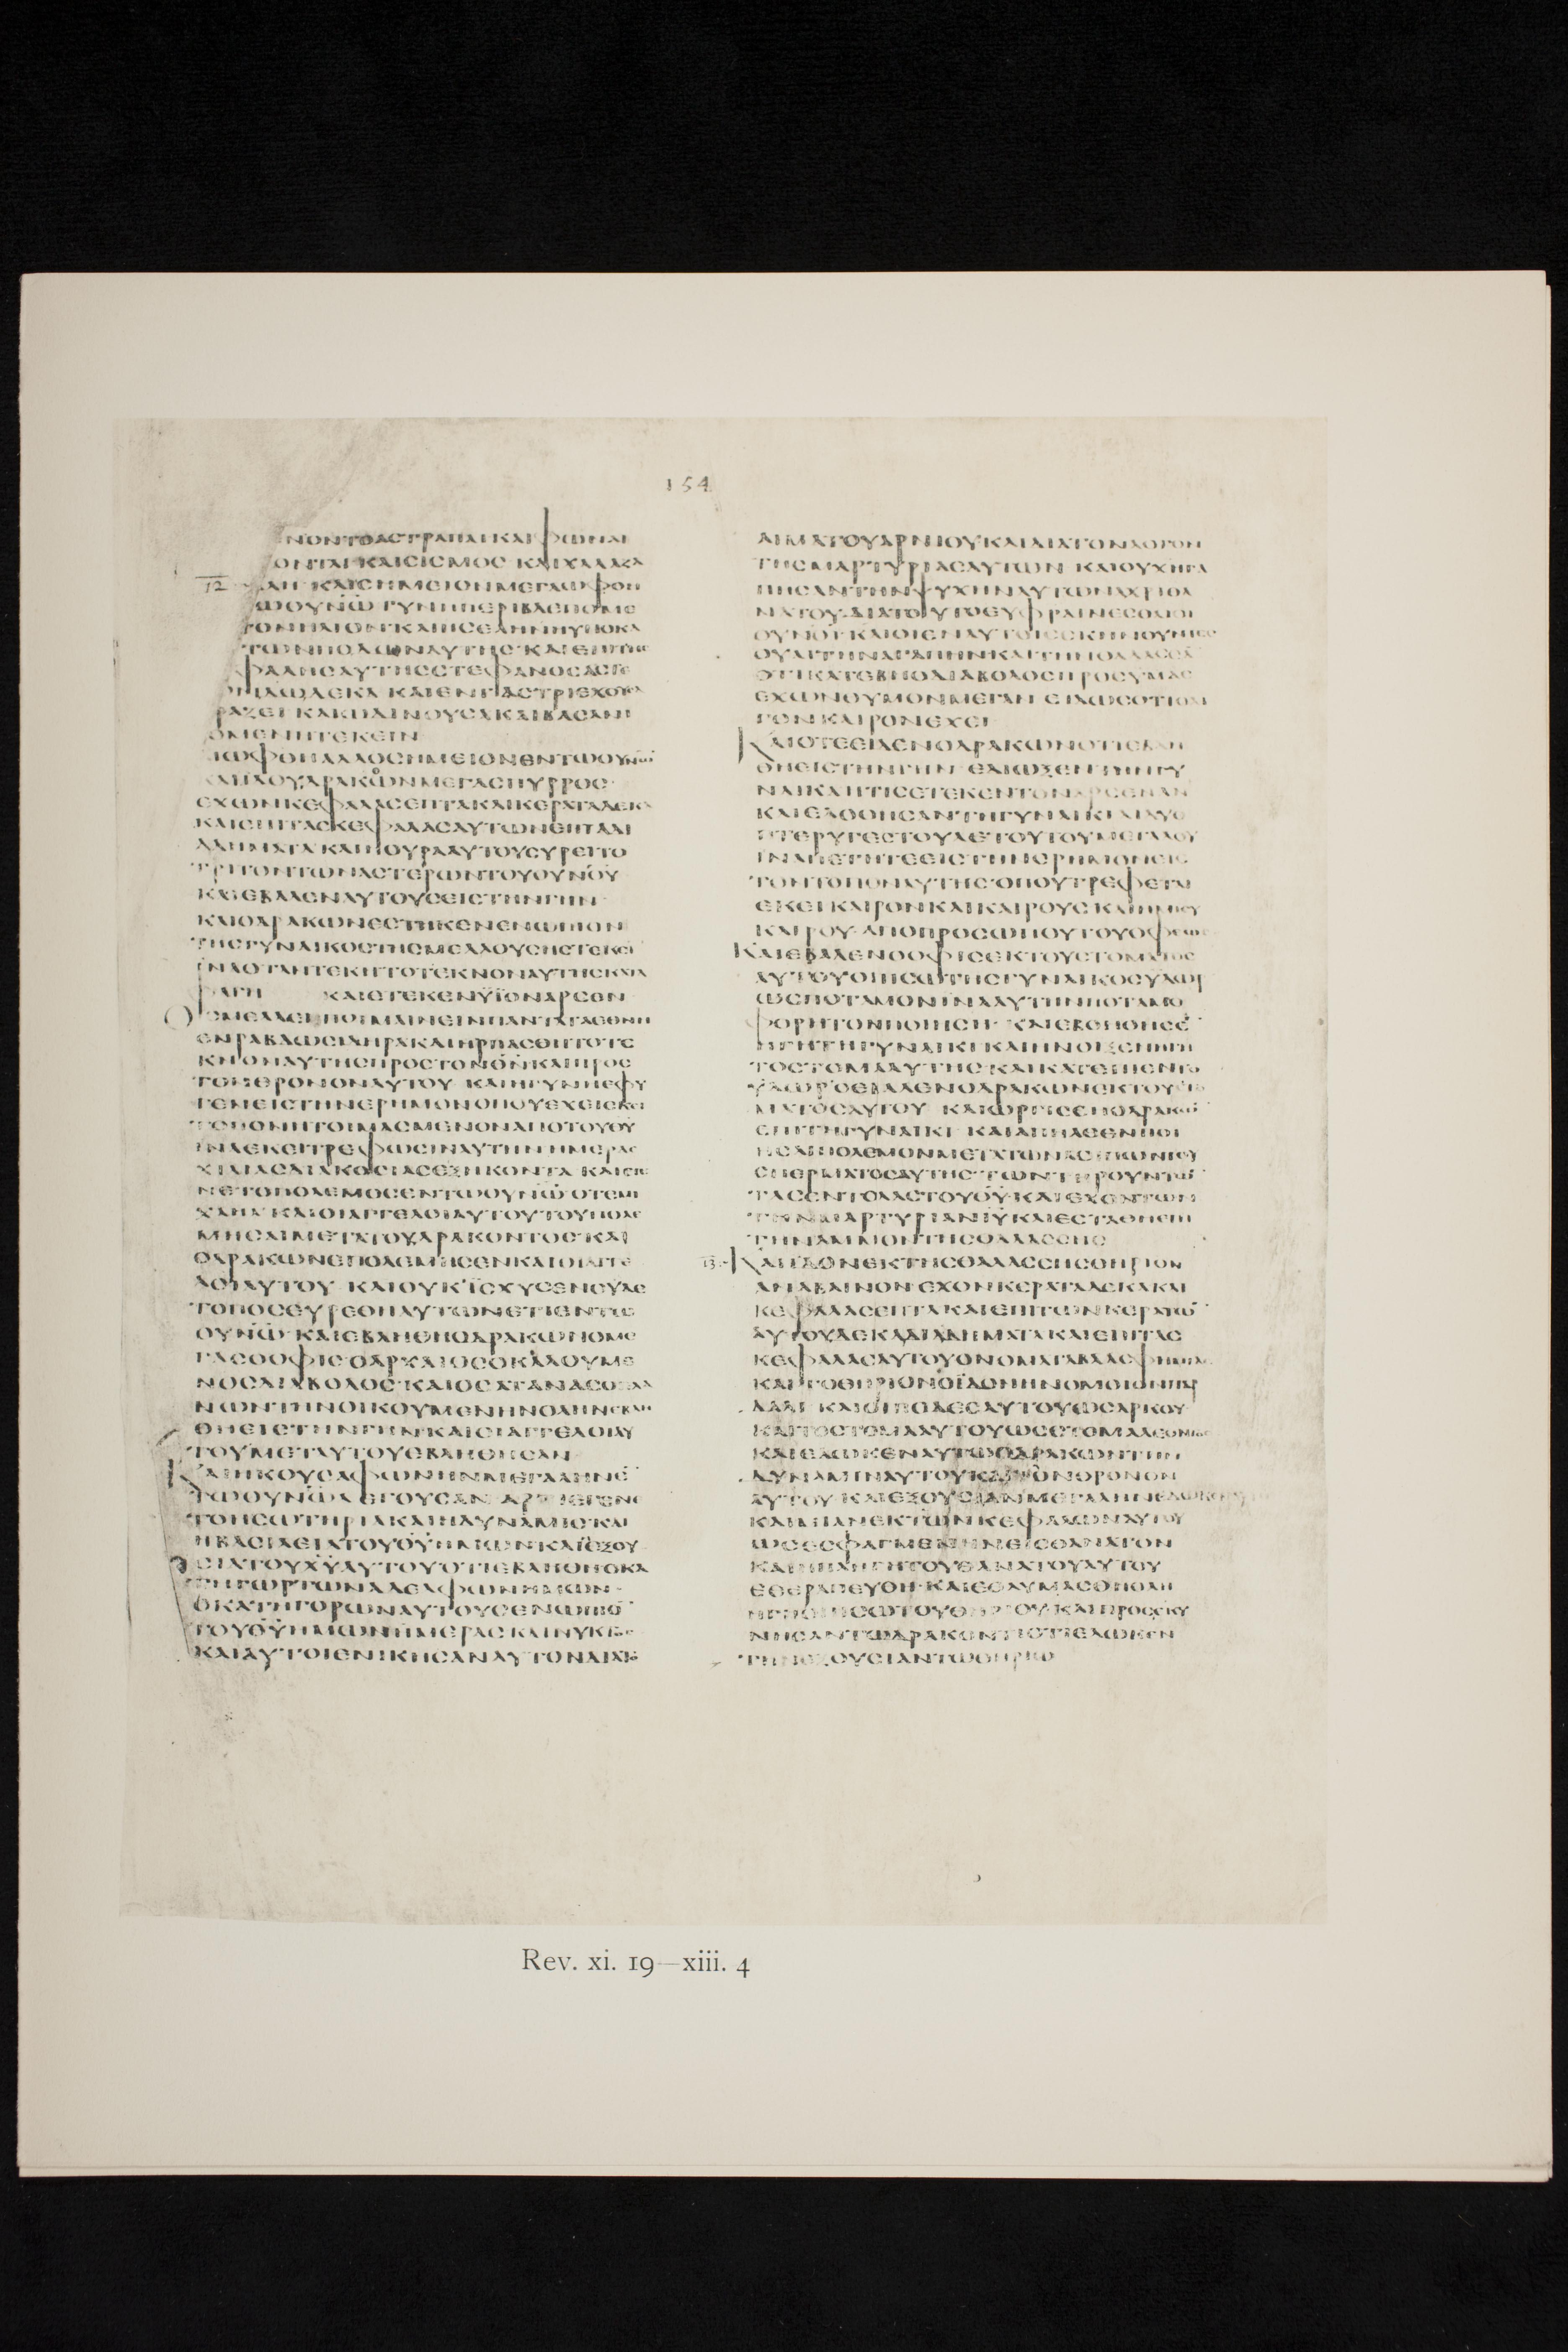 154
ΝΟΝΤΟΑϹΤΡΑΠΑΙΚΑΙΦΩΝΑΙ
ΟΝΤΑΙ ΚΑΙϹΙϹΜΟϹ ΚΑΙΧΑΛΑΖΑ
12
ΛΗ ΚΑΙϹΗΜΕΙΟΝΜΕΓΑΩΦΘΗ
ΩΟΥΝΩ ΓΥΝΗΠΕΡΙΒΛΕΠΟΜΕ
ΤΟΝΗΛΙΟΝ ΚΑΙΗϹΕΛΗΝΗΥΠΟΚΑ
ΤΩΝΠΟΔΩΝΑΥΤΗϹ ΚΑΙΕΠΙΤΗϹ
ΦΑΛΗϹΑΥΤΗϹϹΤΕΦΑΝΟϹΑϹΤΕ
ΔΩΔΕΚΑ ΚΑΙΕΝΓΑϹΤΡΙΕΧΟΥϹΑ
ΡΑΖΕΙ ΚΑΙΩΔΙΝΟΥϹΑΚΑΙΒΑϹΑΝΙ
ΟΜΕΝΗΤΕΚΕΙΝ
ΙΩΦΘΗΑΛΛΟϹΗΜΕΙΟΝΕΝΤΩΟΥΝΩ
ΚΑΙΪΔΟΥΔΡΑΚΩΝΜΕΓΑϹΠΥΡΡΟϹ
ΕΧΩΝΚΕΦΑΛΑϹΕΠΤΑΚΑΙΚΕΡΑΤΑΔΕΚΑ
ΚΑΙΕΠΙΤΑϹΚΕΦΑΛΑϹΑΥΤΩΝΕΠΤΑΔΙ
ΑΔΗΜΑΤΑ ΚΑΙΗΟΥΡΑΑΥΤΟΥϹΥΡΕΙΤΟ
ΤΡΙΤΟΝΤΩΝΑϹΤΕΡΩΝΤΟΥΟΥΝΟΥ
ΚΑΙΕΒΑΛΕΝΑΥΤΟΥϹΕΙϹΤΗΝΓΗΝ
ΚΑΙΟΔΡΑΚΩΝΕϹΤΗΚΕΝΕΝΩΠΙΟΝ
ΤΗϹΓΥΝΑΙΚΟϹΤΗϹΜΕΛΛΟΥϹΗϹΤΕΚΕΙ
ΙΝΑΟΤΑΝΤΕΚΗΤΟΤΕΚΝΟΝΑΥΤΗϹΚΑΤΑ
ΦΑΓΗ ΚΑΙΕΤΕΚΕΝΫΪΟΝΑΡϹΕΝ
ΟϹΜΕΛΛΕΙΠΟΙΜΑΙΝΕΙΝΠΑΝΤΑΤΑΕΘΝΗ
ΕΝΡΑΒΔΩϹΙΔΗΡΑΚΑΙΗΡΠΑϹΘΗΤΟΤΕ
ΚΝΟΝΑΥΤΗϹΠΡΟϹΤΟΝΘΝΚΑΙΠΡΟϹ
ΤΟΝΘΡΟΝΟΝΑΥΤΟΥ ΚΑΙΗΓΥΝΗΕΦΥ
ΓΕΝΕΙϹΤΗΝΕΡΗΜΟΝΟΠΟΥΕΧΕΙΕΚΕΙ
ΤΟΠΟΝΗΤΟΙΜΑϹΜΕΝΟΝΑΠΟΤΟΥΘΥ
ΙΝΑΕΚΕΙΤΡΕΦΩϹΙΝΑΥΤΗΝΗΜΕΡΑϹ
ΧΙΛΙΑϹΔΙΑΚΟϹΙΑϹΕΞΗΚΟΝΤΑ ΚΑΙΕΓΕ
ΝΕΤΟΠΟΛΕΜΟϹΕΝΤΩΟΥΝΩ ΟΤΕΜΙ
ΧΑΗΛ ΚΑΙΟΙΑΓΓΕΛΟΙΑΥΤΟΥΤΟΥΠΟΛΕ
ΜΗϹΑΙΜΕΤΑΤΟΥΔΡΑΚΟΝΤΟϹ ΚΑΙ
ΟΔΡΑΚΩΝΕΠΟΛΕΜΗϹΕΝΚΑΙΟΙΑΓΓΕ
ΛΟΙΑΥΤΟΥ ΚΑΙΟΥΚΪϹΧΥϹΕΝΟΥΔΕ
ΤΟΠΟϹΕΥΡΕΘΗΑΥΤΩΝΕΤΙΕΝΤΩ
ΟΥΝΩ ΚΑΙΕΒΛΗΘΗΟΔΡΑΚΩΝΟΜΕ
ΓΑϹΟΟΦΙϹ ΟΑΡΧΑΙΟϹΟΚΑΛΟΥΜΕ
ΝΟϹΔΙΑΒΟΛΟϹ ΚΑΙΟϹΑΤΑΝΑϹΟΠΛΑ
ΝΩΝΤΗΝΟΙΚΟΥΜΕΝΗΝΟΛΗΝΕΒΛΗ
ΘΗΕΙϹΤΗΝΓΗΝΚΑΙΟΙΑΓΓΕΛΟΙΑΥ
ΤΟΥΜΕΤΑΥΤΟΥΕΒΛΗΘΗϹΑΝ
ΚΑΙΗΚΟΥϹΑΦΩΝΗΝΜΕΓΑΛΗΝΕ
ΤΩΟΥΝΩΛΕΓΟΥϹΑΝ ΑΡΤΙΕΓΕΝΕ
ΤΟΗϹΩΤΗΡΙΑΚΑΙΗΔΥΝΑΜΙϹΚΑΙ
ΗΒΑϹΙΛΕΙΑΤΟΥΘΥΗΜΩΝΚΑΙΗΕΞΟΥ
ϹΙΑΤΟΥΧΥΑΥΤΟΥΟΤΙΕΒΛΗΘΗΟΚΑ
ΤΗΓΩΡΤΩΝΑΔΕΛΦΩΝΗΜΩΝ
ΟΚΑΤΗΓΟΡΩΝΑΥΤΟΥϹΕΝΩΠΙΟ
ΤΟΥΘΥΗΜΩΝΗΜΕΡΑϹ ΚΑΙΝΥΚΤΟϹ
ΚΑΙΑΥΤΟΙΕΝΙΚΗϹΑΝΑΥΤΟΝΔΙΑΤΟ
ΑΙΜΑΤΟΥΑΡΝΙΟΥΚΑΙΔΙΑΤΟΝΛΟΓΟΝ
ΤΗϹΜΑΡΤΥΡΙΑϹΑΥΤΩΝ ΚΑΙΟΥΧΗΓΑ
ΠΗϹΑΝΤΗΝΨΥΧΗΝΑΥΤΩΝΑΧΡΙΘΑ
ΝΑΤΟΥ ΔΙΑΤΟΥΤΟΕΥΦΡΑΙΝΕϹΘΑΙΟΙ
ΟΥΝΟΙ ΚΑΙΟΙΕΝΑΥΤΟΙϹϹΚΗΝΟΥΝΤΕϹ
ΟΥΑΙΤΗΝΑΓΑΠΗΝΚΑΙΤΗΝΘΑΛΑϹϹΑ
ΟΤΙΚΑΤΕΒΗΟΔΙΑΒΟΛΟϹΠΡΟϹΥΜΑϹ
ΕΧΩΝΘΥΜΟΝΜΕΓΑΝ ΕΙΔΩϹΟΤΙΟΛΙ
ΓΟΝΚΑΙΡΟΝΕΧΕΙ
ΚΑΙΟΤΕΕΙΔΕΝΟΔΡΑΚΩΝΟΤΙΕΒΛΗ
ΘΗΕΙϹΤΗΝΓΗΝ ΕΔΙΩΞΕΝΤΗΝΓΥ
ΝΑΙΚΑΗΤΙϹΕΤΕΚΕΝΤΟΝΑΡϹΕΝΑΝ
ΚΑΙΕΔΟΘΗϹΑΝΤΗΓΥΝΑΙΚΙΑΙΔΥΟ
ΠΤΕΡΥΓΕϹΤΟΥΑΕΤΟΥΤΟΥΜΕΓΑΛΟΥ
ΙΝΑΠΕΤΗΤΕΕΙϹΤΗΝΕΡΗΜΟΝΕΙϹ
ΤΟΝΤΟΠΟΝΑΥΤΗϹ ΟΠΟΥΤΡΕΦΕΤΑΙ
ΕΚΕΙ ΚΑΙΡΟΝΚΑΙΚΑΙΡΟΥϹ ΚΑΙΗΜΙϹΥ
ΚΑΙΡΟΥ ΑΠΟΠΡΟϹΩΠΟΥΤΟΥΟΦΕΩϹ
ΚΑΙΕΒΑΛΕΝΟΟΦΙϹΕΚΤΟΥϹΤΟΜΑΤΟϹ
ΑΥΤΟΥΟΠΙϹΩΤΗϹΓΥΝΑΙΚΟϹΥΔΩΡ
ΩϹΠΟΤΑΜΟΝΙΝΑΑΥΤΗΝΠΟΤΑΜΟ
ΦΟΡΗΤΟΝΠΟΙΗϹΗ ΚΑΙΕΒΟΗΘΗϹΕ
ΗΓΗΤΗΓΥΝΑΙΚΙ ΚΑΙΗΝΟΙΞΕΝΗΓΗ
ΤΟϹΤΟΜΑΑΥΤΗϹ ΚΑΙΚΑΤΕΠΙΕΝΤΟ
ΥΔΩΡΟΕΒΑΛΕΝΟΔΡΑΚΩΝΕΚΤΟΥϹΤΟ
ΜΑΤΟϹΑΥΤΟΥ ΚΑΙΩΡΓΙϹΘΗΟΔΡΑΚΩ
ΕΠΙΤΗΓΥΝΑΙΚΙ ΚΑΙΑΠΗΛΘΕΝΠΟΙ
ΗϹΑΙΠΟΛΕΜΟΝΜΕΤΑΤΩΝΛΟΙΠΩΝΤΟΥ
ϹΠΕΡΜΑΤΟϹΑΥΤΗϹ ΤΩΝΤΗΡΟΥΝΤΩ
ΤΑϹΕΝΤΟΛΑϹΤΟΥΘΥ ΚΑΙΕΧΟΝΤΩΝ
ΤΗΝΜΑΡΤΥΡΙΑΝΙΥ ΚΑΙΕϹΤΑΘΗΕΠΙ
ΤΗΝΑΜΜΟΝΤΗϹΘΑΛΑϹϹΗϹ
13
ΚΑΙΪΔΟΝΕΚΤΗϹΘΑΛΑϹϹΗϹΘΗΡΙΟΝ
ΑΝΑΒΑΙΝΟΝ ΕΧΟΝΚΕΡΑΤΑΔΕΚΑΚΑΙ
ΚΕΦΑΛΑϹΕΠΤΑΚΑΙΕΠΙΤΩΝΚΕΡΑΤΩ
ΑΥΤΟΥΔΕΚΑΔΙΑΔΗΜΑΤΑΚΑΙΕΠΙΤΑϹ
ΚΕΦΑΛΑϹΑΥΤΟΥΟΝΟΜΑΤΑΒΛΑϹΦΗΜΙΑϹ
ΚΑΙΤΟΘΗΡΙΟΝΟΪΔΟΝΗΝΟΜΟΙΟΝΠΑΡ
ΔΑΛΙ ΚΑΙΟΙΠΟΔΕϹΑΥΤΟΥΩϹΑΡΚΟΥ
ΚΑΙΤΟϹΤΟΜΑΑΥΤΟΥΩϹϹΤΟΜΑΛΕΟΝΤΟϹ
ΚΑΙΕΔΩΚΕΝΑΥΤΩΟΔΡΑΚΩΝΤΗΝ
ΔΥΝΑΜΙΝΑΥΤΟΥΚΑΙΤΟΝΘΡΟΝΟΝ
ΑΥΤΟΥ ΚΑΙΕΞΟΥϹΙΑΝΜΕΓΑΛΗΝΕΔΩΚΕΝ
ΚΑΙΜΙΑΝΕΚΤΩΝΚΕΦΑΛΩΝΑΥΤΟΥ
ΩϹΕϹΦΑΓΜΕΝΗΝΕΙϹΘΑΝΑΤΟΝ
ΚΑΙΗΠΛΗΓΗΤΟΥΘΑΝΑΤΟΥΑΥΤΟΥ
ΕΘΕΡΑΠΕΥΘΗ ΚΑΙΕΘΑΥΜΑϹΘΗΟΛΗ
ΗΓΗΟΠΙϹΩΤΟΥΘΗΡΙΟΥ ΚΑΙΠΡΟϹΕΚΥ
ΝΗϹΑΝΤΩΔΡΑΚΟΝΤΙΟΤΙΕΔΩΚΕΝ
ΤΗΝΕΞΟΥϹΙΑΝΤΩΘΗΡΙΩ
Rev. xi. 19—xiii. 4